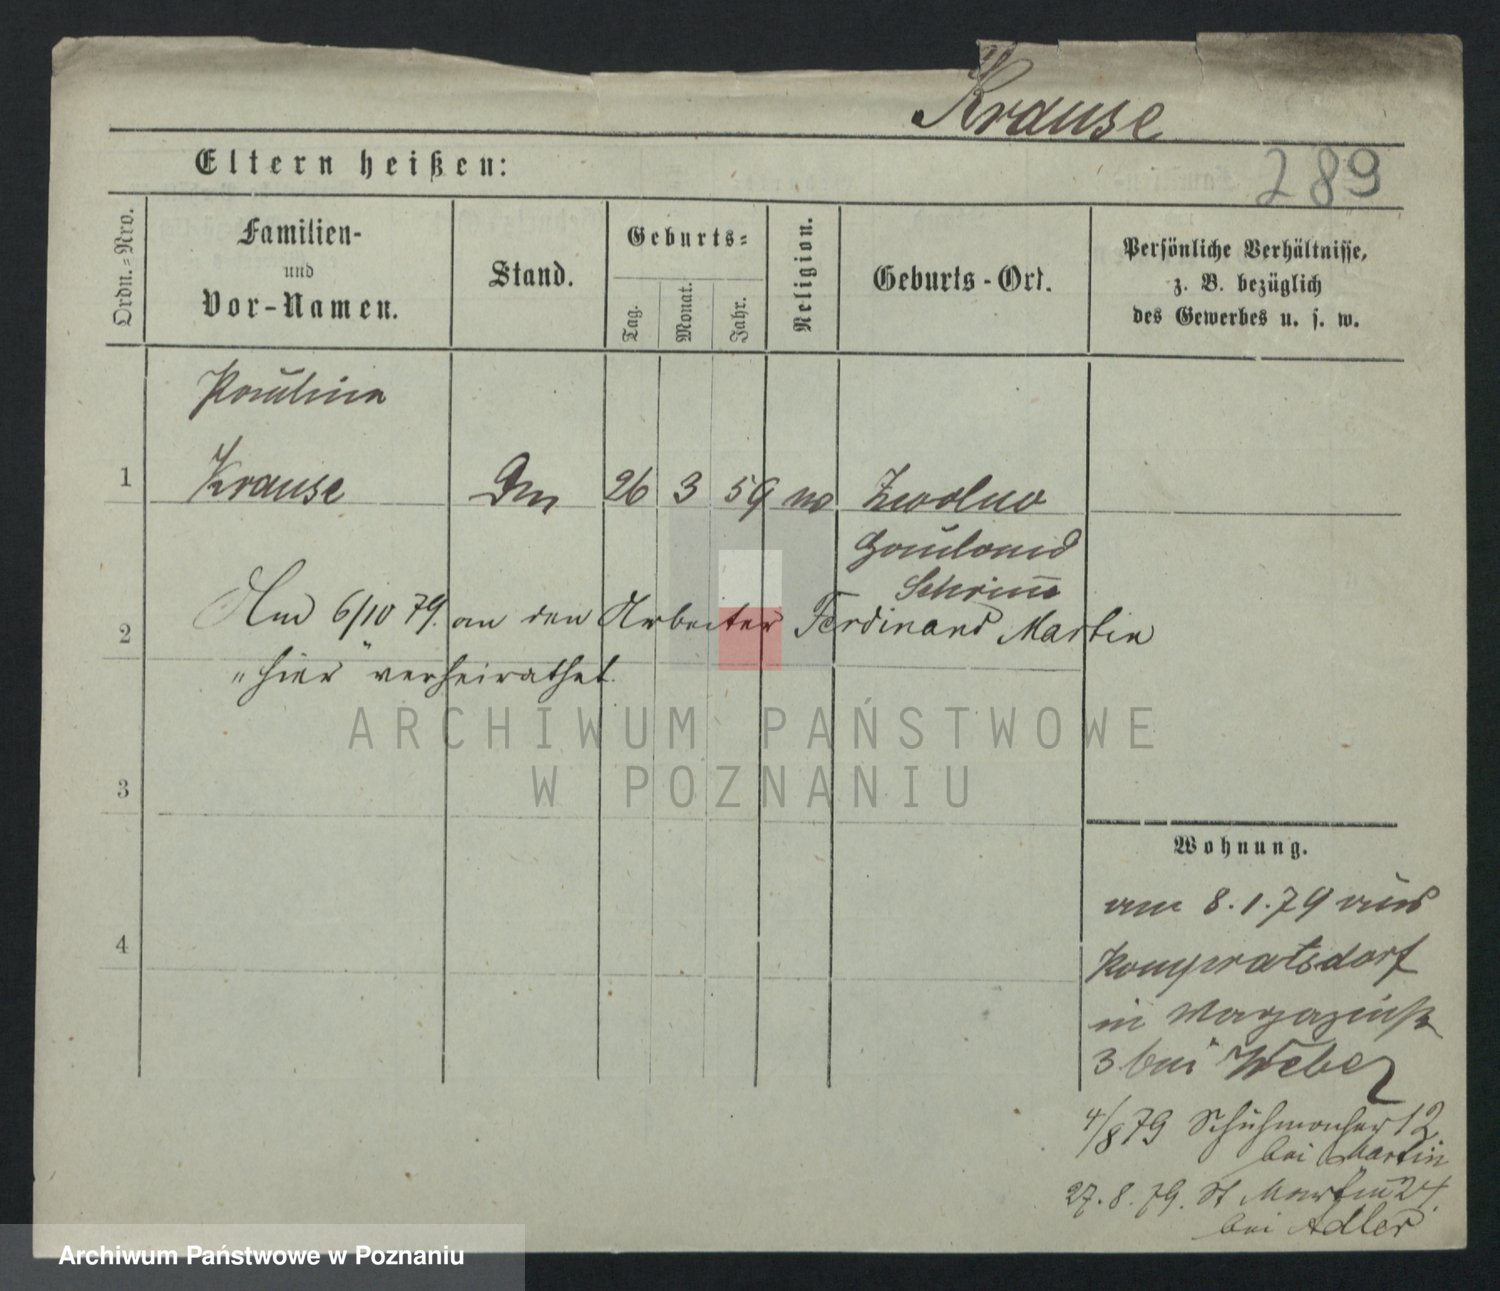 Krause
289
Eltern heißen:
Ordn.-Nro.
Familien-
und
Vor-Namen.
Stand.
Geburts-
Tag.
Monat.
Jahr.
Religion.
Geburts-Ort.
Persönliche Verhältnisse,
z. B. bezüglich
des Gewerbes u. s. w.
Paulina
1 Krause 26 3 59
Hauland
Schrimm
2 Am 6/10 79. an den Arbeiter Ferdinand Martin
"hier" verheirathet.
ARCHIWUM PAŃSTWOWE
W POZNANIU
3
4
Wohnung.
am 8.1.79 aus
in Magazinstr
3 bei Weber
4/8 79 Schuhmacher 12
bei Martin
27.8.79. St Martin 24.
bei Adler
Archiwum Państwowe w Poznaniu